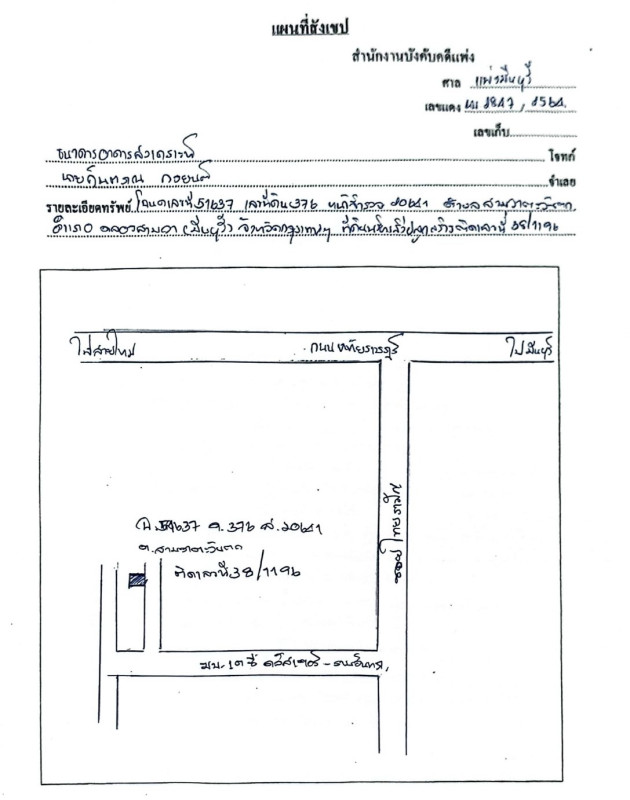 แผนที่สังเขป
สำนักงานบังคับคดีแพ่ง
ศาล แพ่งมีนบุรี
เลขแดง ผบ 1847, 2564
เลขเก็บ
ธนาคารอาคารสงเคราะห์ โจทก์
นาย จำเลย
รายละเอียดทรัพย์ โฉนดเลขที่ 51637 เลขที่ดิน 376 หน้าสำรวจ 20641 ตำบลสามวาตะวันตก
อำเภอ คลองสามวา (มีนบุรี) จังหวัดกรุงเทพฯ ที่ดินพร้อมสิ่งปลูกสร้างติดเลขที่ 38/1196
ไปสายไหม
ถนน หทัยราษฎร์
ไปมีนบุรี
ซอย ไทยรามัญ
ฉ.51637 ด.376 ส.20641
ต.สามวาตะวันตก
ติดเลขที่ 38/1196
มบ. เดอะ คัลเลอร์ส - รามอินทรา